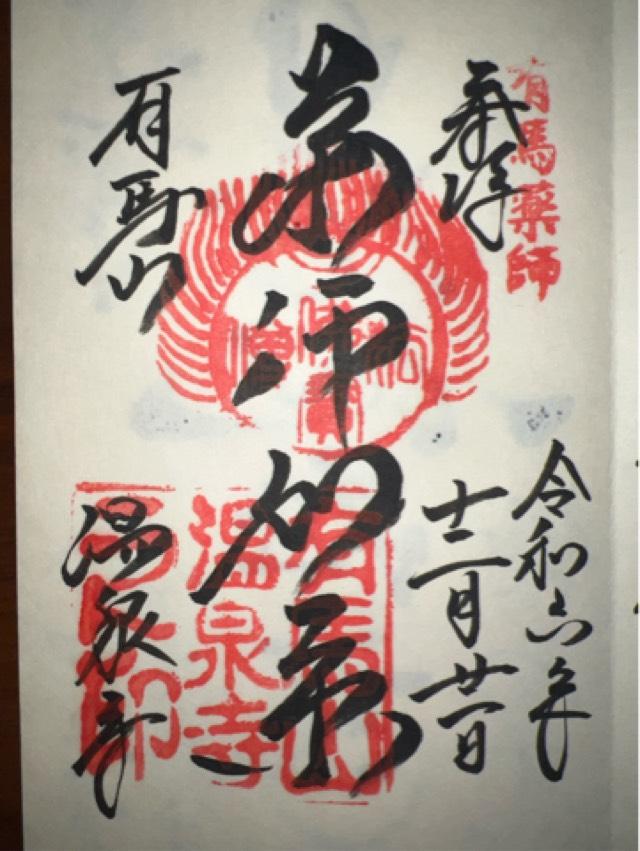 有馬薬師
奉拝
令和六年
十二月廿一日
薬師如来
有馬山
温泉寺
有馬山
温泉寺